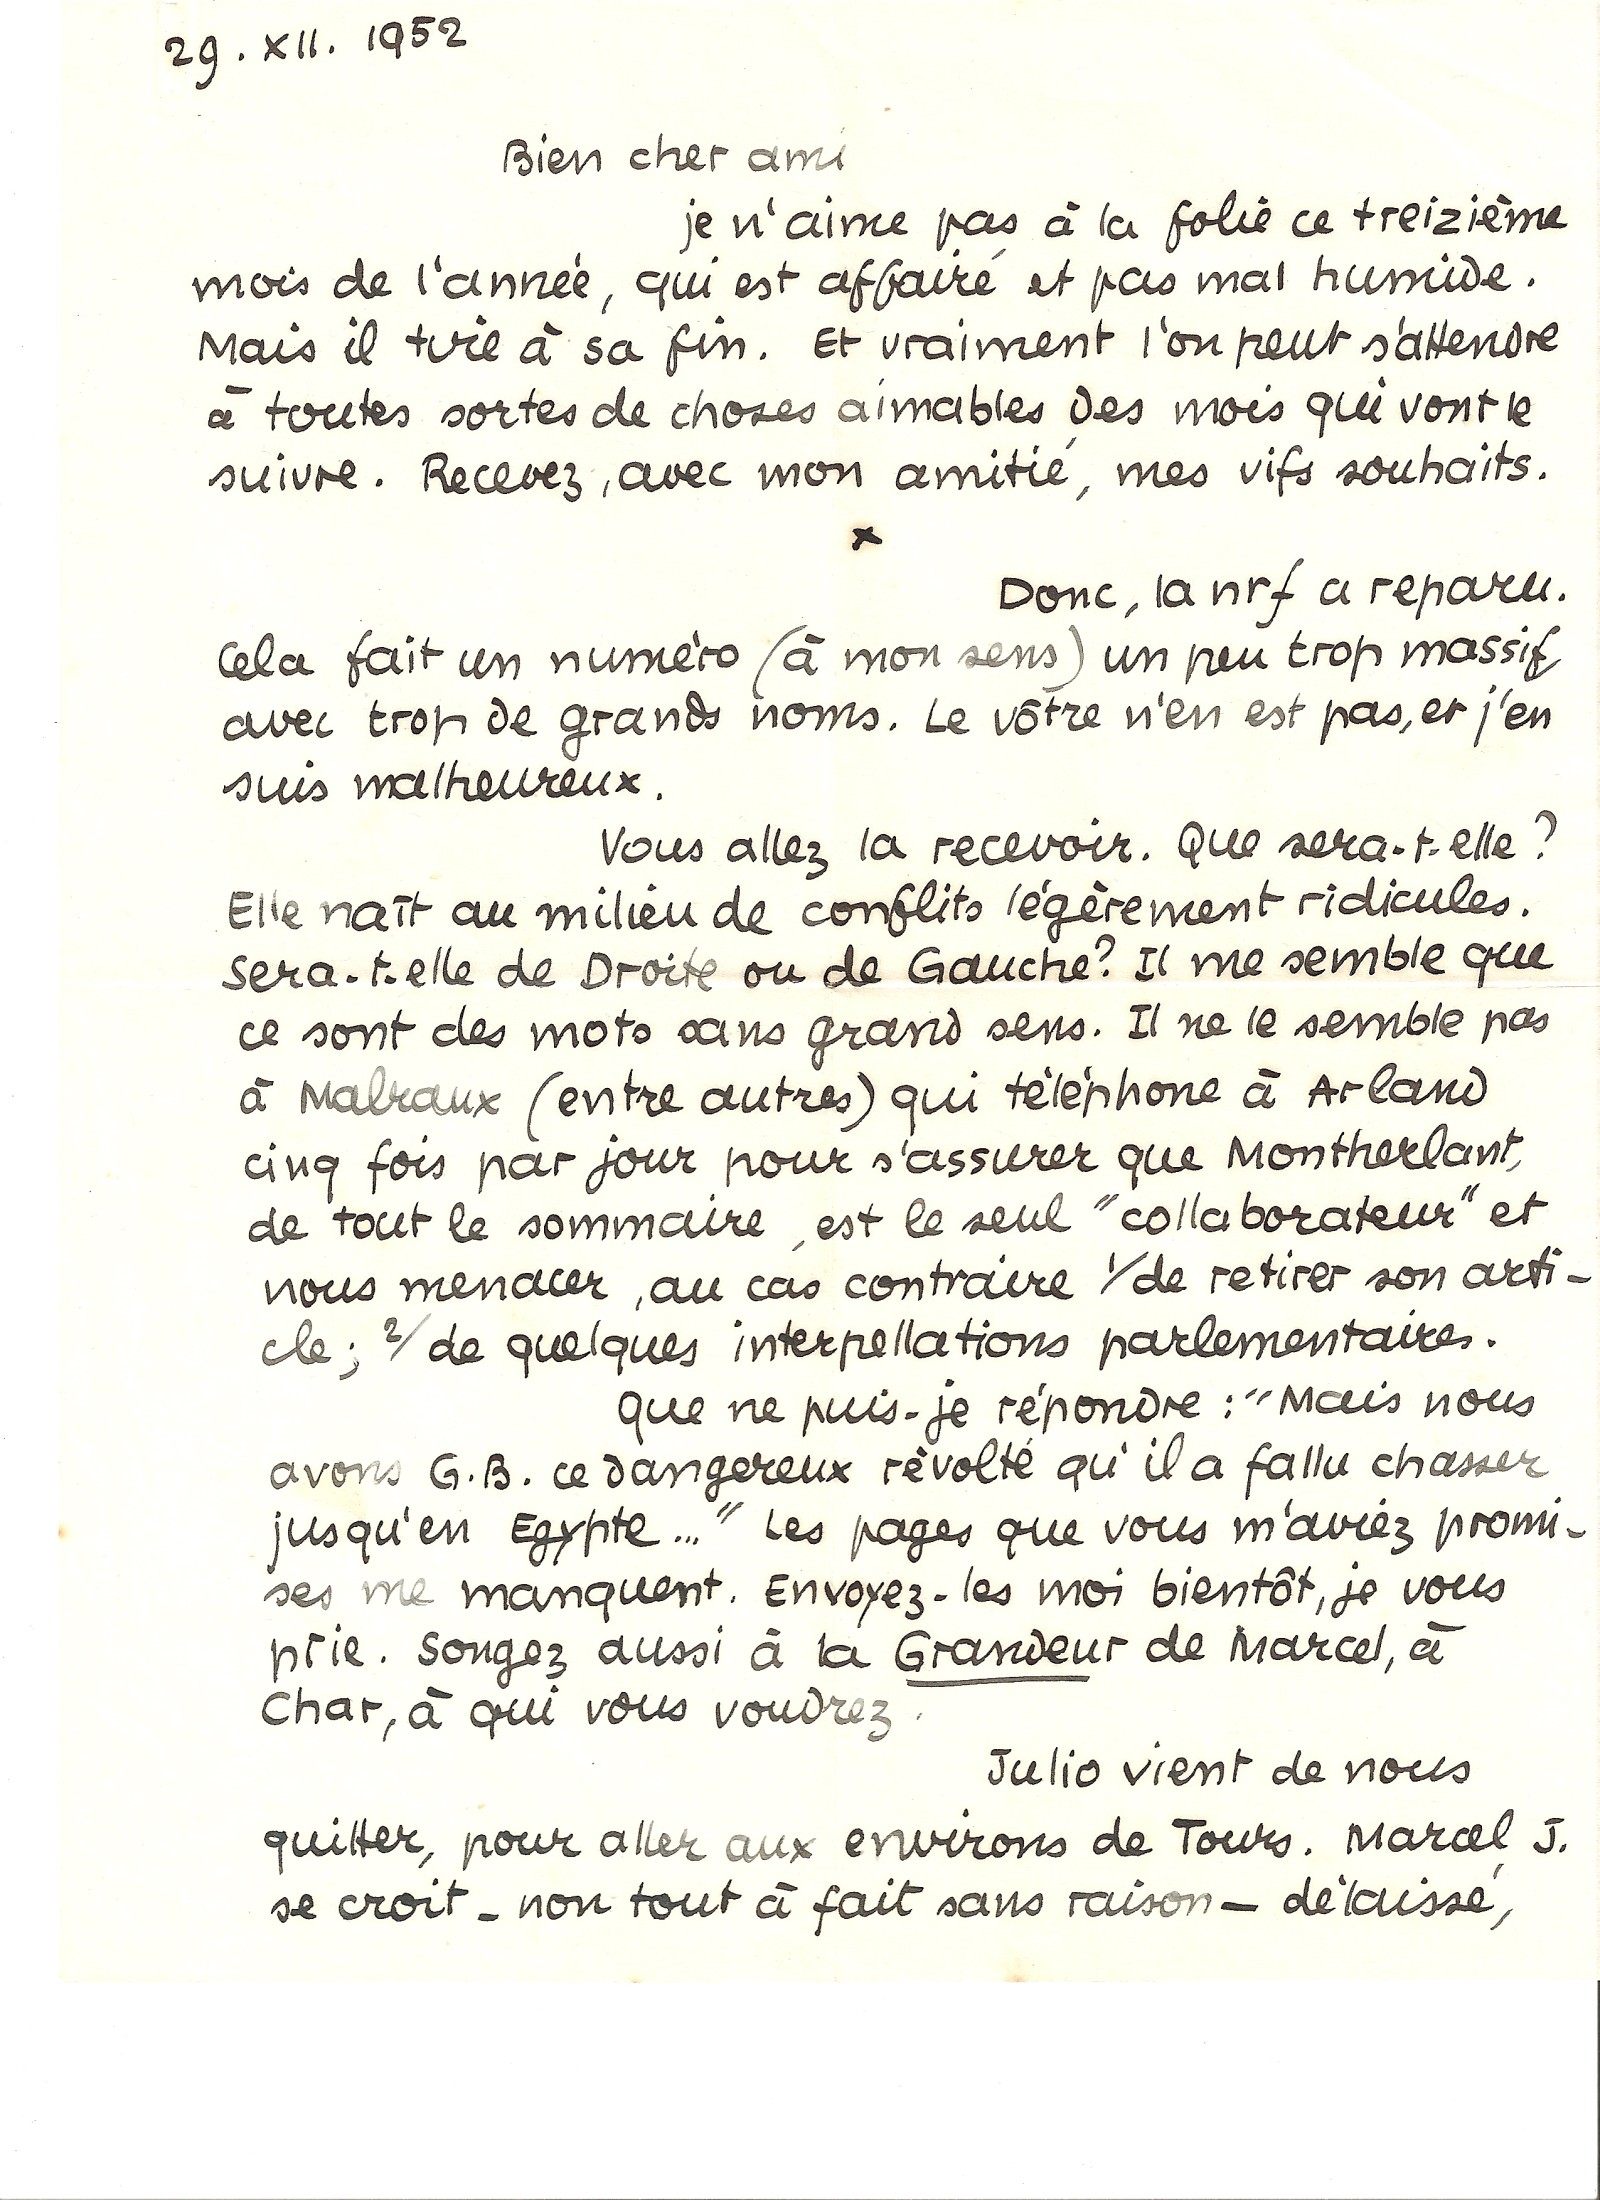 29. XII. 1952
Bien cher ami
je n'aime pas à la folie ce treizième
mois de l'année, qui est affairé et pas mal humide.
Mais il tire à sa fin. Et vraiment l'on peut s'attendre
à toutes sortes de choses aimables des mois qui vont le
suivre. Recevez, avec mon amitié, mes vifs souhaits.
x
Donc, la nrf a reparu.
Cela fait un numéro (à mon sens) un peu trop massif,
avec trop de grands noms. Le vôtre n'en est pas, et j'en
suis malheureux.
Vous allez la recevoir. Que sera-t-elle?
Elle naît au milieu de conflits légèrement ridicules.
Sera-t-elle de Droite ou de Gauche? Il me semble que
ce sont des mots sans grand sens. Il ne le semble pas
à Malraux (entre autres) qui téléphone à Arland
cinq fois par jour pour s'assurer que Montherlant,
de tout le sommaire, est le seul "collaborateur" et
nous menacer, au cas contraire 1/ de retirer son arti-
cle; 2/ de quelques interpellations parlementaires.
Que ne puis-je répondre: "Mais nous
avons G.B. ce dangereux révolté qu'il a fallu chasser
jusqu'en Egypte..." Les pages que vous m'aviez promi-
ses me manquent. Envoyez-les moi bientôt, je vous
prie. Songez aussi à la Grandeur de Marcel, à
Char, à qui vous voudrez.
Julio vient de nous
quitter, pour aller aux environs de Tours. Marcel J.
se croit - non tout à fait sans raison - délaissé,